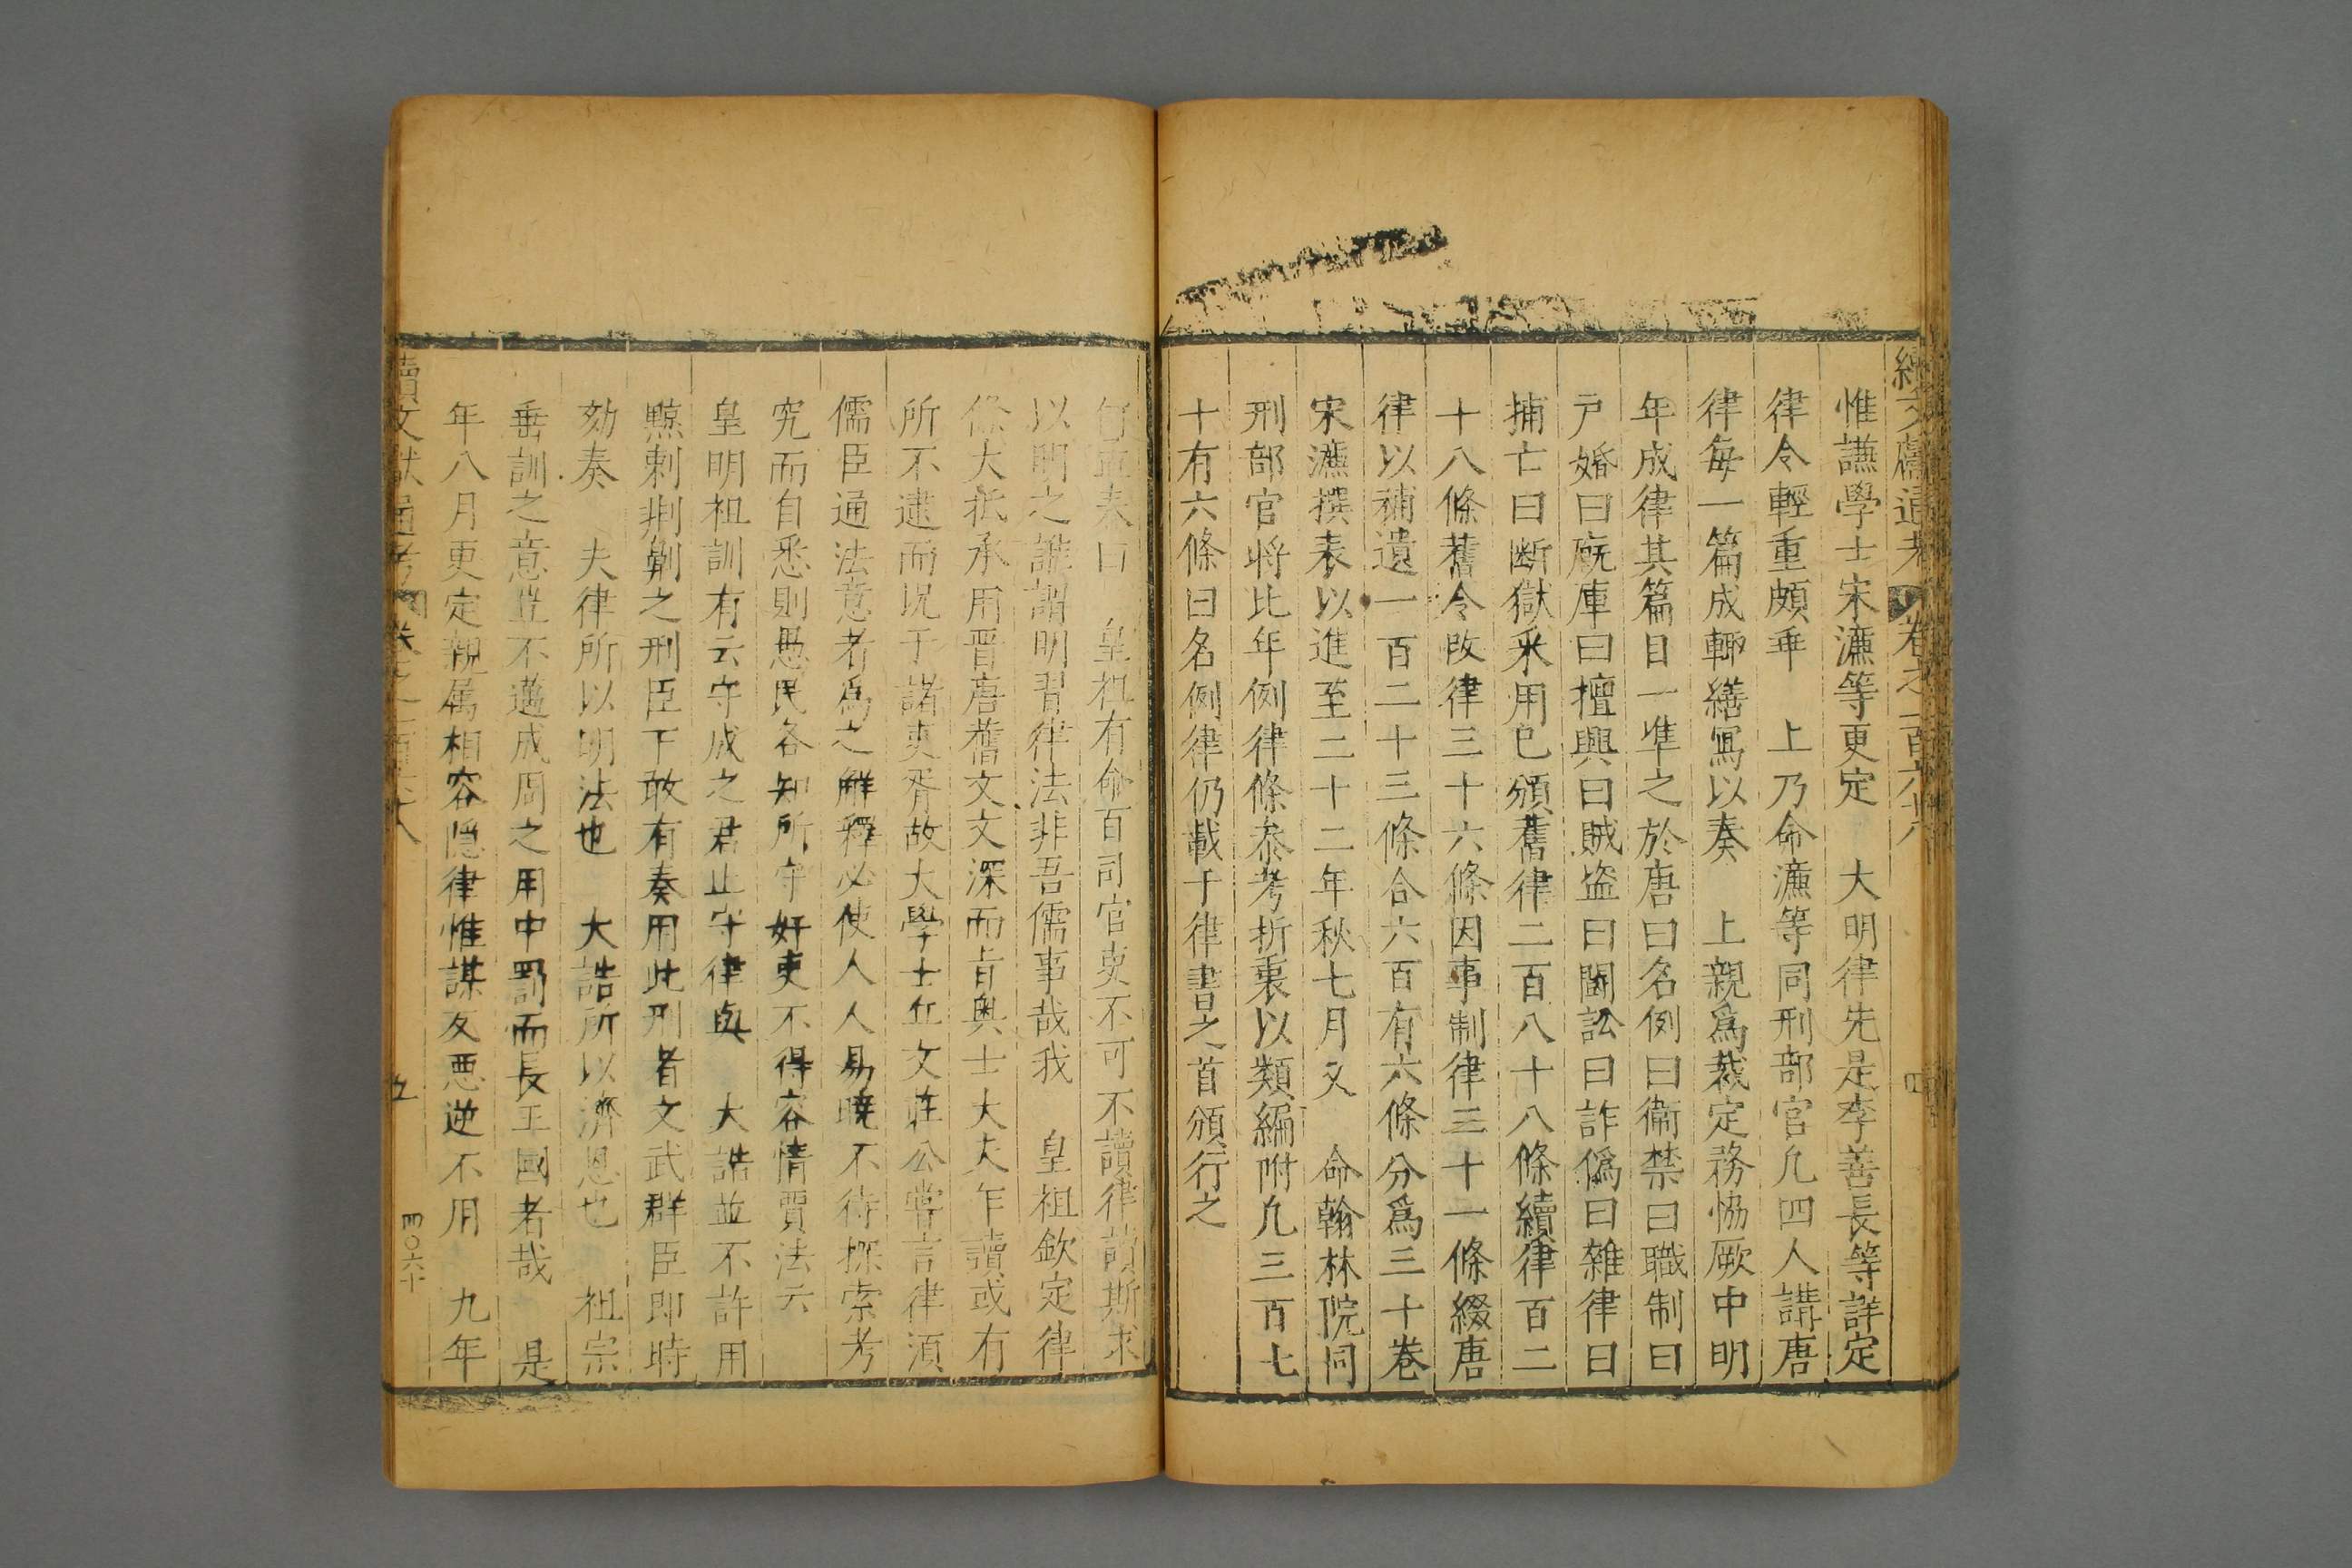 續文獻通考 卷之一百六十八
四
惟謙學士宋濂等更定 大明律先是李善長等詳定
律令輕重頗乖 上乃命濂等同刑部官凢四人講唐
律每一篇成輙繕寫以奏 上親爲裁定務恊厥中明
年成律其篇目一準之於唐曰名例曰衞禁曰職制曰
戸婚曰廐庫曰擅興曰賊盗曰鬭訟曰詐僞曰雜律曰
捕亡曰断獄采用已頒舊律二百八十八條續律百二
十八條舊令改律三十六條因事制律三十一條綴唐
律以補遺一百二十三條合六百有六條分爲三十卷
宋濂撰表以進至二十二年秋七月又 命翰林院同
刑部官将比年例律條叅考折衷以類編附凢三百七
十有六條曰名例律仍載于律書之首頒行之
皇祖有命百司官吏不可不讀律苟斯求
以明之誰謂明習律法非吾儒事哉我 皇祖欽定律
條大抵承用晋唐舊文文深而旨奥士大夫乍讀或有
所不逮而况于諸吏胥故大學士丘文莊公嘗言律湏
儒臣通法意者爲之解釋必使人人易曉不待探索考
究而自悉則愚民各知所守奸吏不得容情賣法云
皇明祖訓有云守成之君止守律與 大誥並不許用
黥刺剕劓之刑臣下敢有奏用此刑者文武群臣即時
劾奏 夫律所以明法也 大誥所以濟恩也 祖宗
垂訓之意豈不邁成周之用中罰而長王國者哉 是
年八月更定親属相容隠律惟謀反惡逆不用 九年
續文獻通考 卷之一百六十八
五
四〇六十